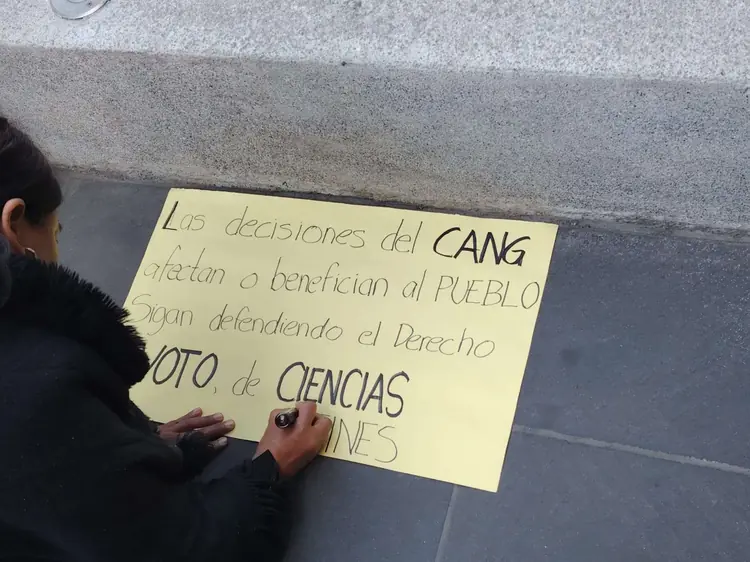 Las decisiones del CANG
afectan o benefician al PUEBLO
Sigan defendiendo el Derecho
VOTO, de CIENCIAS
INES